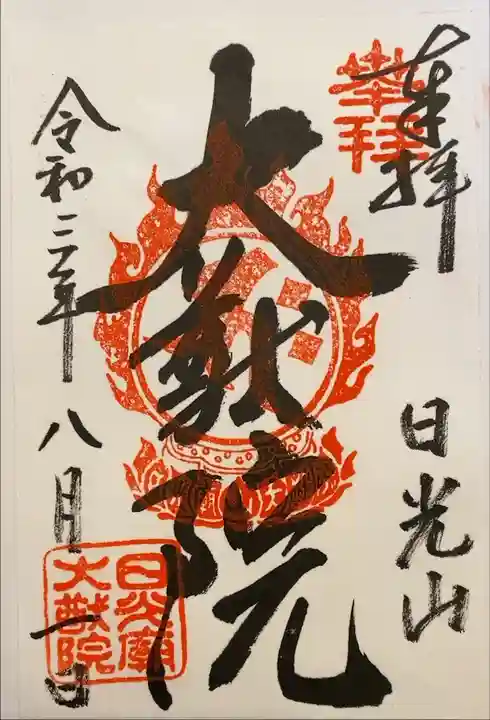 奉拝
奉拝
日光山
大猷院
令和二年八月一日
日光廟
大猷院